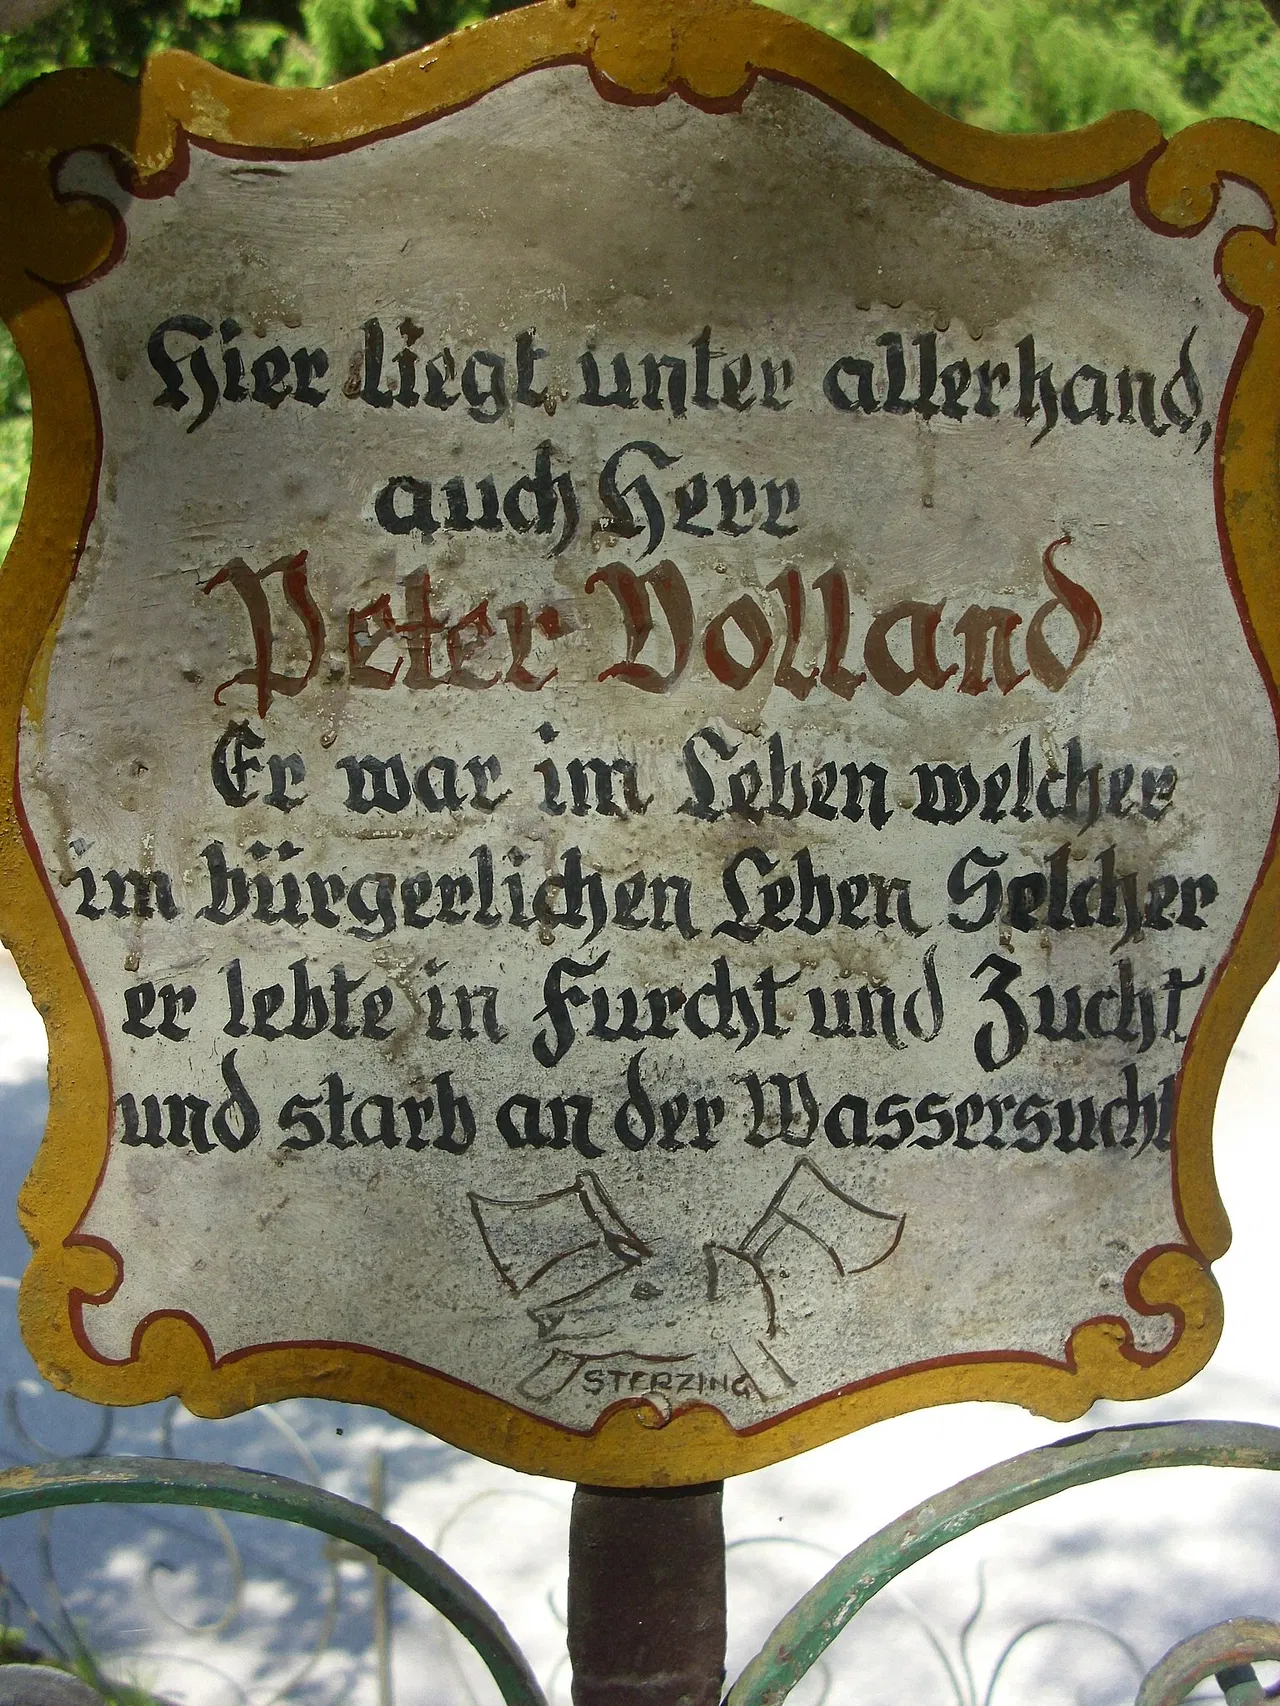 Hier liegt unter allerhand,
auch Herr
Peter Volland
Er war im Leben welcher
im bürgerlichen Leben Selcher
er lebte in Furcht und Zucht
und starb an der Wassersucht
STERZING